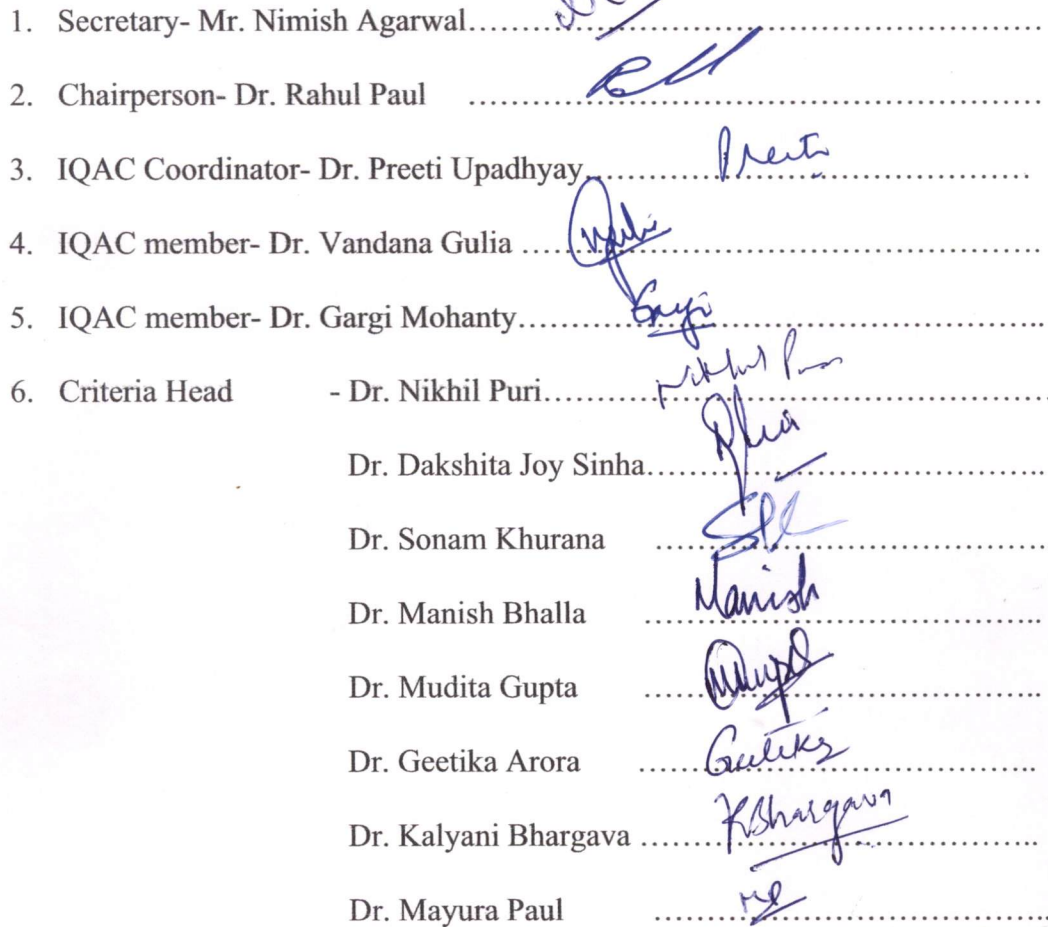 1. Secretary- Mr. Nimish Agarwal……………………………………………
2. Chairperson- Dr. Rahul Paul ……………………………………………
3. IQAC Coordinator- Dr. Preeti Upadhyay…………………………………… Preeti
4. IQAC member- Dr. Vandana Gulia ……………………………………………
5. IQAC member- Dr. Gargi Mohanty…………………………………………… Gargi
6. Criteria Head - Dr. Nikhil Puri…………………………………………… Nikhil Puri
Dr. Dakshita Joy Sinha……………………………………
Dr. Sonam Khurana ……………………………………
Dr. Manish Bhalla …………………………………… Manish
Dr. Mudita Gupta ……………………………………
Dr. Geetika Arora …………………………………… Geetika
Dr. Kalyani Bhargava …………………………………… KBhargava
Dr. Mayura Paul ……………………………………